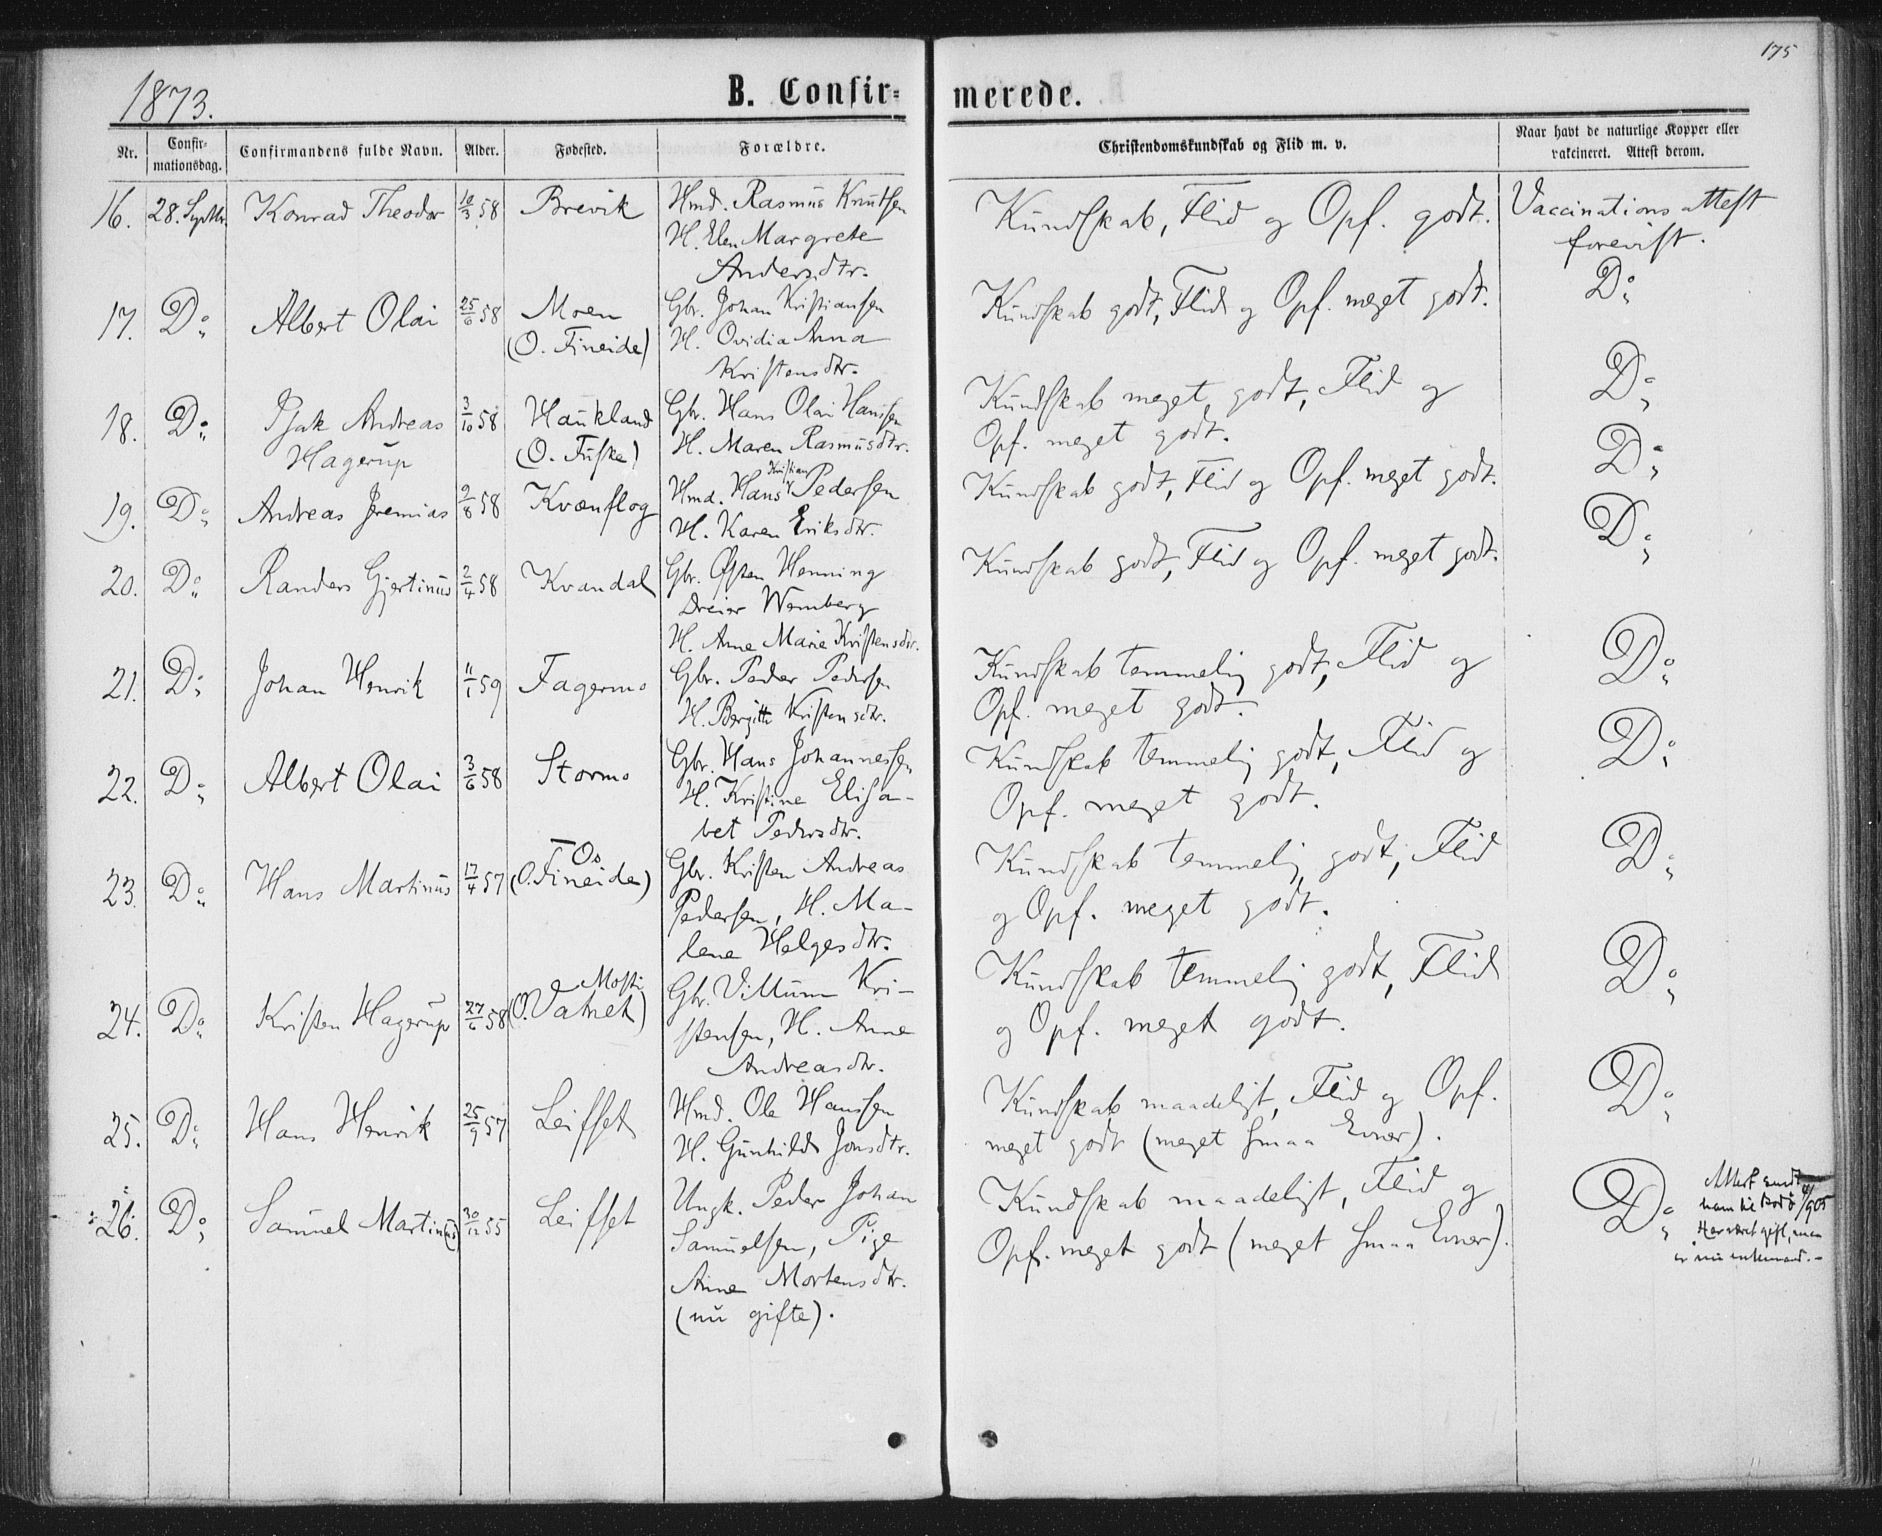 175
1873.
B. Confirmerede.
Nr.
Confirmationsdag.
Confirmandens fulde Navn.
Alder.
Fødested.
Forældre.
Christendomskundskab og Flid m. v.
Naar havt de naturlige Kopper eller
vakcineret. Attest derom.
16. 28. Septbr. Konrad Theodor 10/3 58 Brevik Hmd. Rasmus Knutsen Kundskab, Flid og Opf. godt. Vaccinationsattest
H. Elen Margrete forevist.
Andersdtr.
17. Do Albert Olai 25/6 58 Moen Gbr. Johan Kristiansen Kundskab godt, Flid og Opf. meget godt. Do
(O. Fineide) H. Ovidia Anna
Kristensdtr.
18. Do Isak Andreas 3/10 58 Haukland Gbr. Hans Olai Hansen Kundskab meget godt, Flid og Do
Hagerup (O. Fuske) H. Maren Rasmusdtr. Opf. meget godt.
19. Do Andreas Jeremias 9/8 58 Kvænflog Hmd. Hans Kristian Pedersen Kundskab godt, Flid og Opf. meget godt. Do
H. Karen Eriksdtr.
20. Do Randers Gjertinus 2/4 58 Kvandal Gbr. Østen Henning Kundskab godt, Flid og Opf. meget godt. Do
Dreier Wemberg
H. Anne Marie Kristensdtr.
21. Do Johan Henrik 11/1 59 Fagermo Gbr. Peder Pedersen Kundskab temmelig godt, Flid og Do
H. Bergitte Kristensdtr. Opf. meget godt.
22. Do Albert Olai 3/6 58 Stormo Gbr. Hans Johannessen Kundskab temmelig godt, Flid og Do
H. Kristine Elisa- Opf. meget godt.
bet Pedersdtr.
23. Do Hans Martinus 17/4 57 Os Gbr. Kristen Andreas Kundskab temmelig godt, Flid Do
(O. Fineide) Pedersen, H. Ma- og Opf. meget godt.
lene Helgesdtr.
24. Do Kristen Hagerup 27/6 58 Mosti Gbr. Villum Kri- Kundskab temmelig godt, Flid Do
(O. Vatnet) stensen, H. Anne og Opf. meget godt.
Andreasdtr.
25. Do Hans Henrik 25/9 57 Leifset Hmd. Ole Hansen Kundskab maadeligt, Flid og Opf. Do
H. Gunhild Jonsdtr. meget godt (meget smaa Evner).
26. Do Samuel Martinus 30/12 55 Leifset Ungk. Peder Johan Kundskab maadeligt, Flid og Do
Samuelsen, Pige Opf. meget godt (meget smaa Evner).
Anne Mortensdtr.
(nu gifte).
Attest sendt
ham til Bodø /905
Har været gift, men
er nu enkemand. -